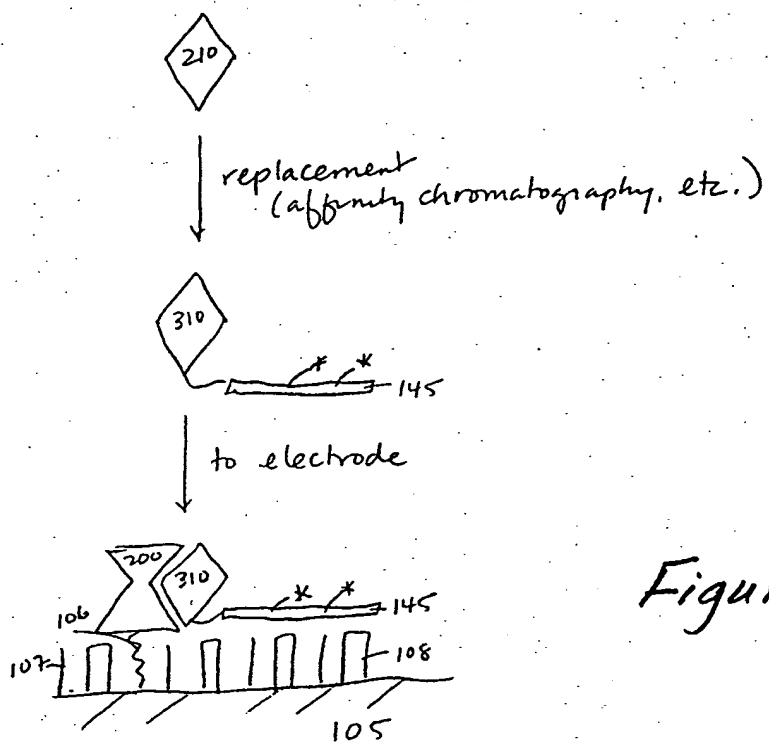 210
replacement
(affinity chromatography, etc.)
310
* *
145
to electrode
200
310
* *
145
106
107
108
105